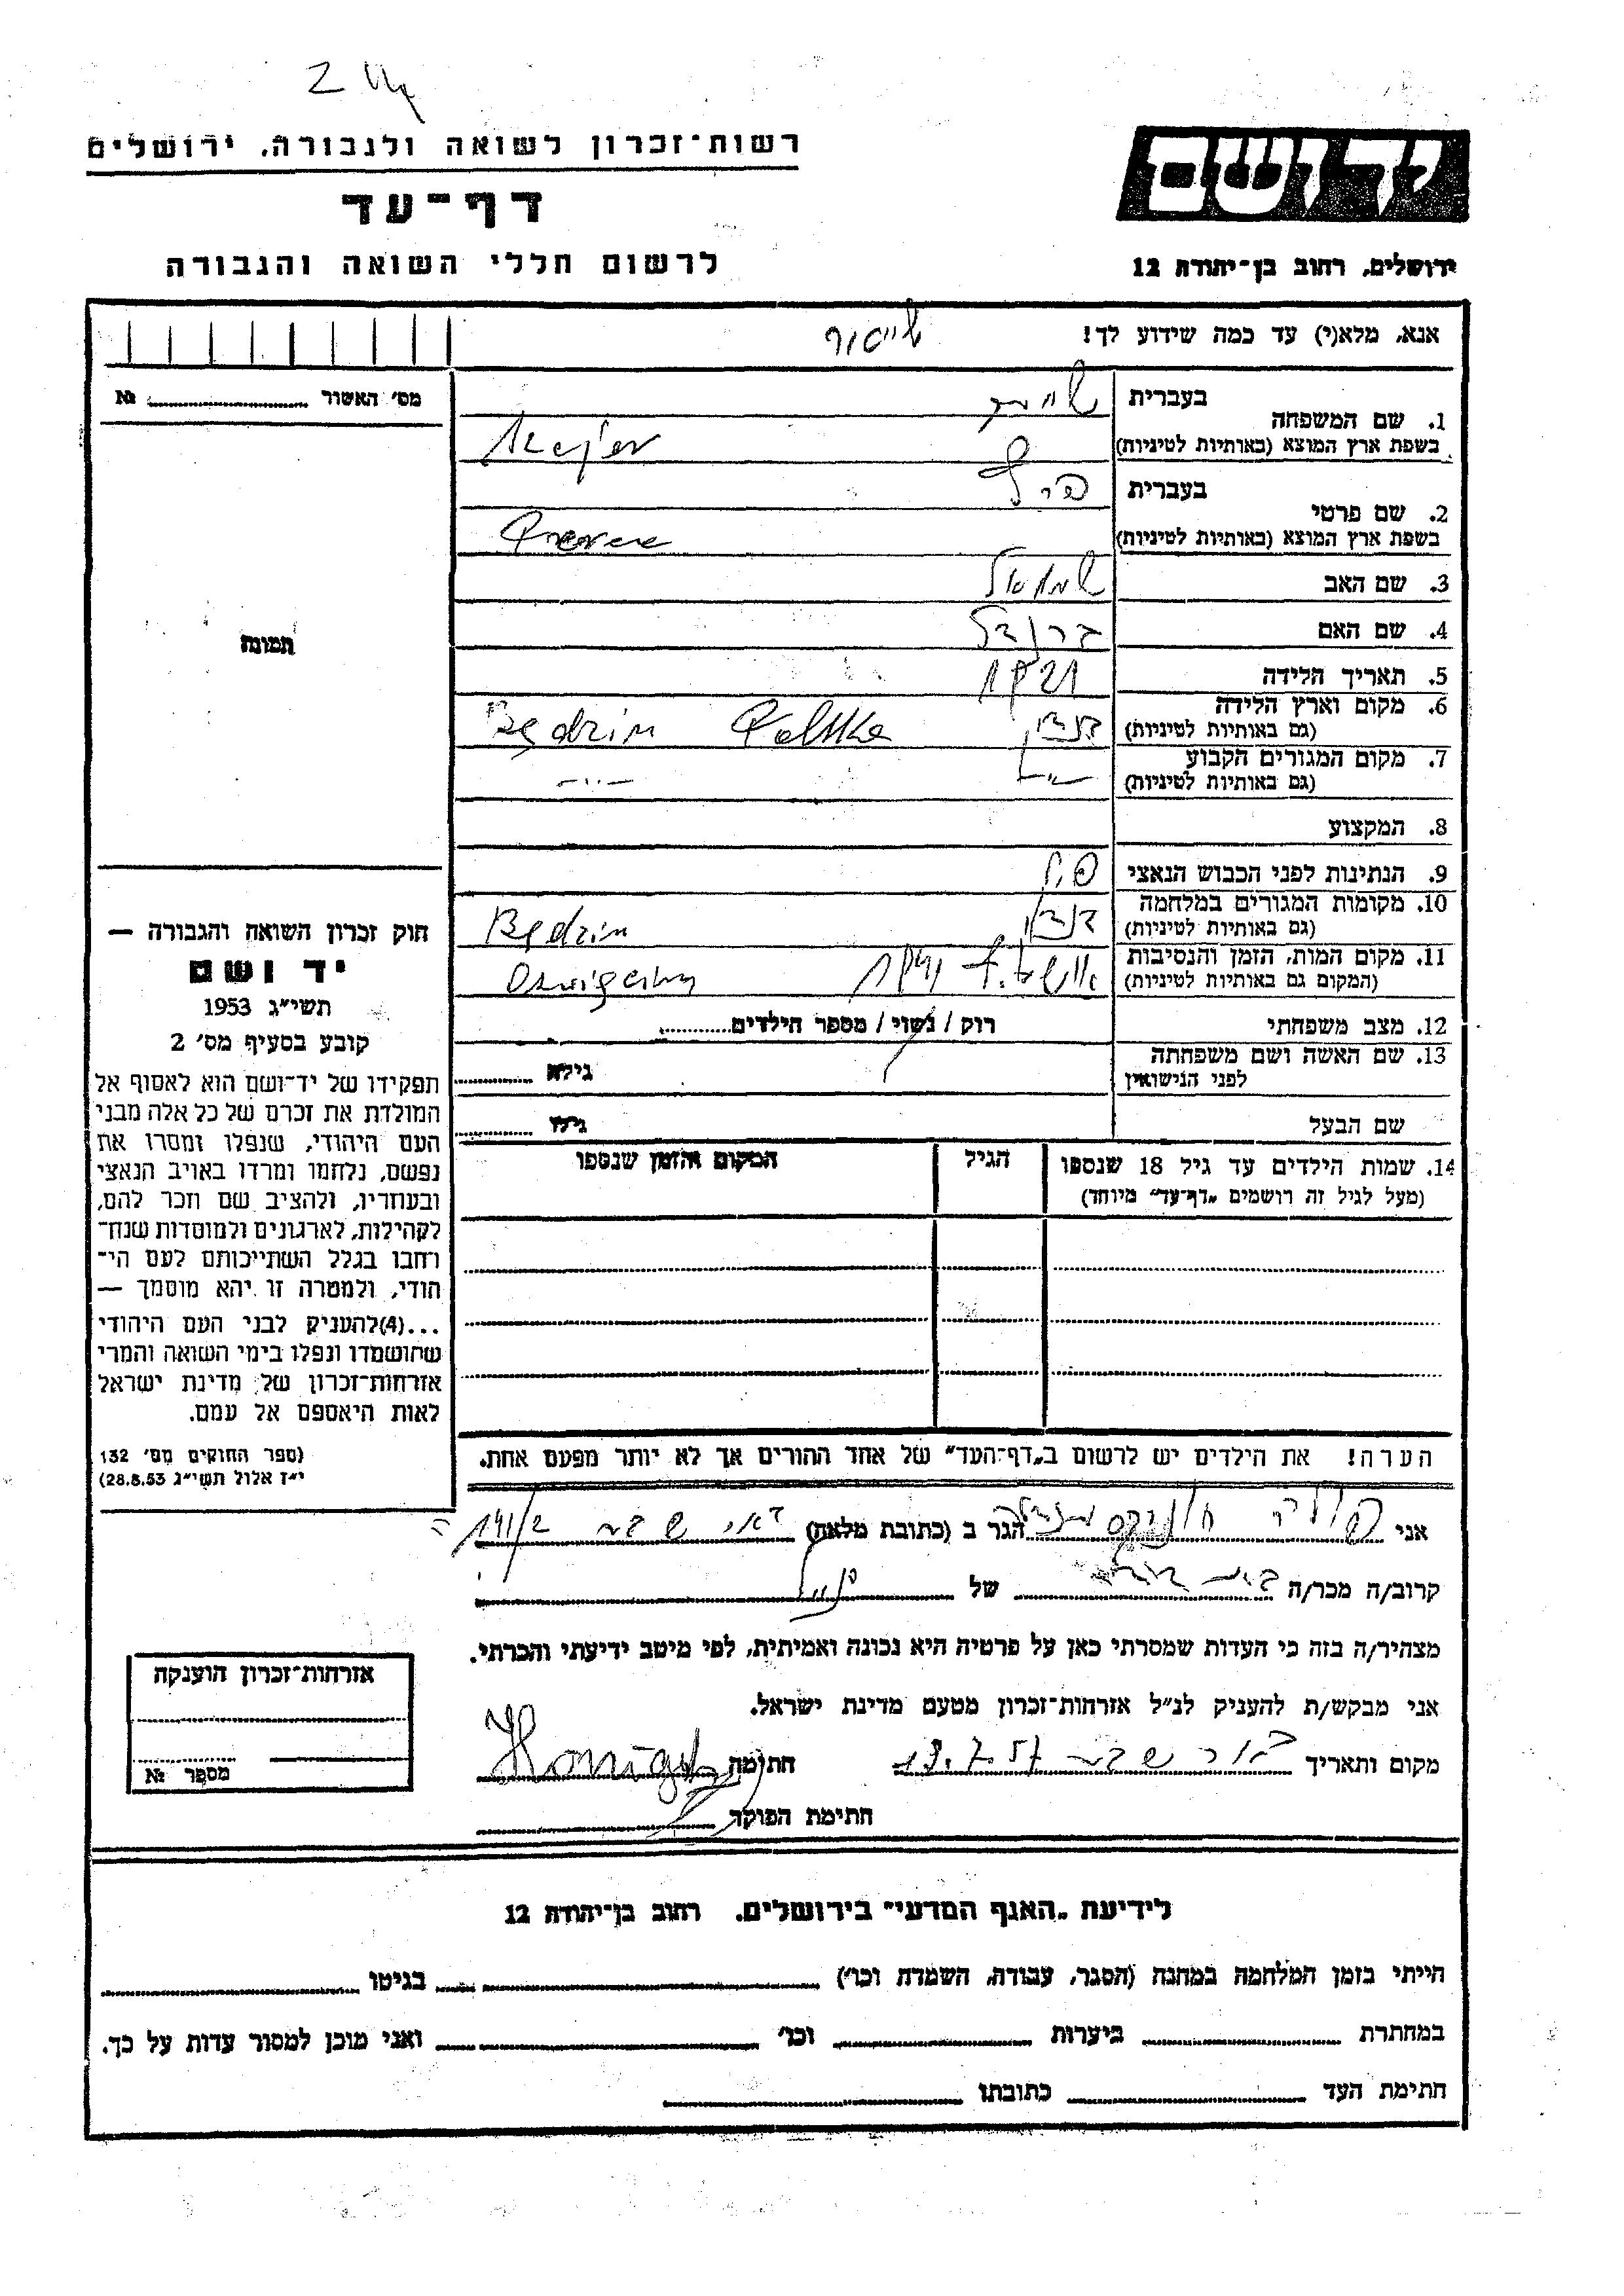 רשות־זכרון לשואה ולגבורה, ירושלים
יד ושם
דף־עד
לרשום חללי השואה והגבורה
ירושלים, רחוב בן־יהודה 12
אנא, מלא(י) עד כמה שידוע לך!
מס׳ האשור № 
1. שם המשפחה בעברית
בשפת ארץ המוצא (באותיות לטיניות) Szajer
2. שם פרטי בעברית
בשפת ארץ המוצא (באותיות לטיניות)
3. שם האב שמואל
4. שם האם
5. תאריך הלידה 1921
6. מקום וארץ הלידה בנדין Będzin Polska
(גם באותיות לטיניות)
7. מקום המגורים הקבוע
(גם באותיות לטיניות)
8. המקצוע
9. הנתינות לפני הכבוש הנאצי
10. מקומות המגורים במלחמה בנדין Będzin
(גם באותיות לטיניות)
11. מקום המות, הזמן והנסיבות
(המקום גם באותיות לטיניות)
12. מצב משפחתי רוק / נשוי / מספר הילדים
13. שם האשה ושם משפחתה גילה
לפני הנישואין
שם הבעל גילו
תמונה
חוק זכרון השואה והגבורה —
יד ושם
תשי״ג 1953
קובע בסעיף מס׳ 2
תפקידו של יד־ושם הוא לאסוף אל
המולדת את זכרם של כל אלה מבני
העם היהודי, שנפלו ומסרו את
נפשם, נלחמו ומרדו באויב הנאצי
ובעוזריו, ולהציב שם וזכר להם,
לקהילות, לארגונים ולמוסדות שנח־
רבו בגלל השתייכותם לעם הי־
הודי, ולמטרה זו יהא מוסמך —
...(4)להעניק לבני העם היהודי
שהושמדו ונפלו בימי השואה והמרי
אזרחות־זכרון של מדינת ישראל
לאות היאספם אל עמם.
(ספר החוקים מס׳ 132
י״ז אלול תשי״ג 28.8.53)
14. שמות הילדים עד גיל 18 שנספו הגיל המקום והזמן שנספו
(מעל לגיל זה רושמים „דף־עד״ מיוחד)
הערה! את הילדים יש לרשום ב„דף־העד״ של אחד ההורים אך לא יותר מפעם אחת.
אני הגר ב (כתובת מלאה) באר שבע
קרוב/ה מכר/ה של
מצהיר/ה בזה כי העדות שמסרתי כאן על פרטיה היא נכונה ואמיתית, לפי מיטב ידיעתי והכרתי.
אני מבקש/ת להעניק לנ״ל אזרחות־זכרון מטעם מדינת ישראל.
מקום ותאריך באר שבע חתימה
חתימת הפוקד
אזרחות־זכרון הוענקה
מספר №
לידיעת „האגף המדעי״ בירושלים, רחוב בן־יהודה 12
הייתי בזמן המלחמה במחנה (הסגר, עבודה, השמדה וכו׳) בגיטו
במחתרת ביערות וכו׳ ואני מוכן למסור עדות על כך.
חתימת העד כתובתו